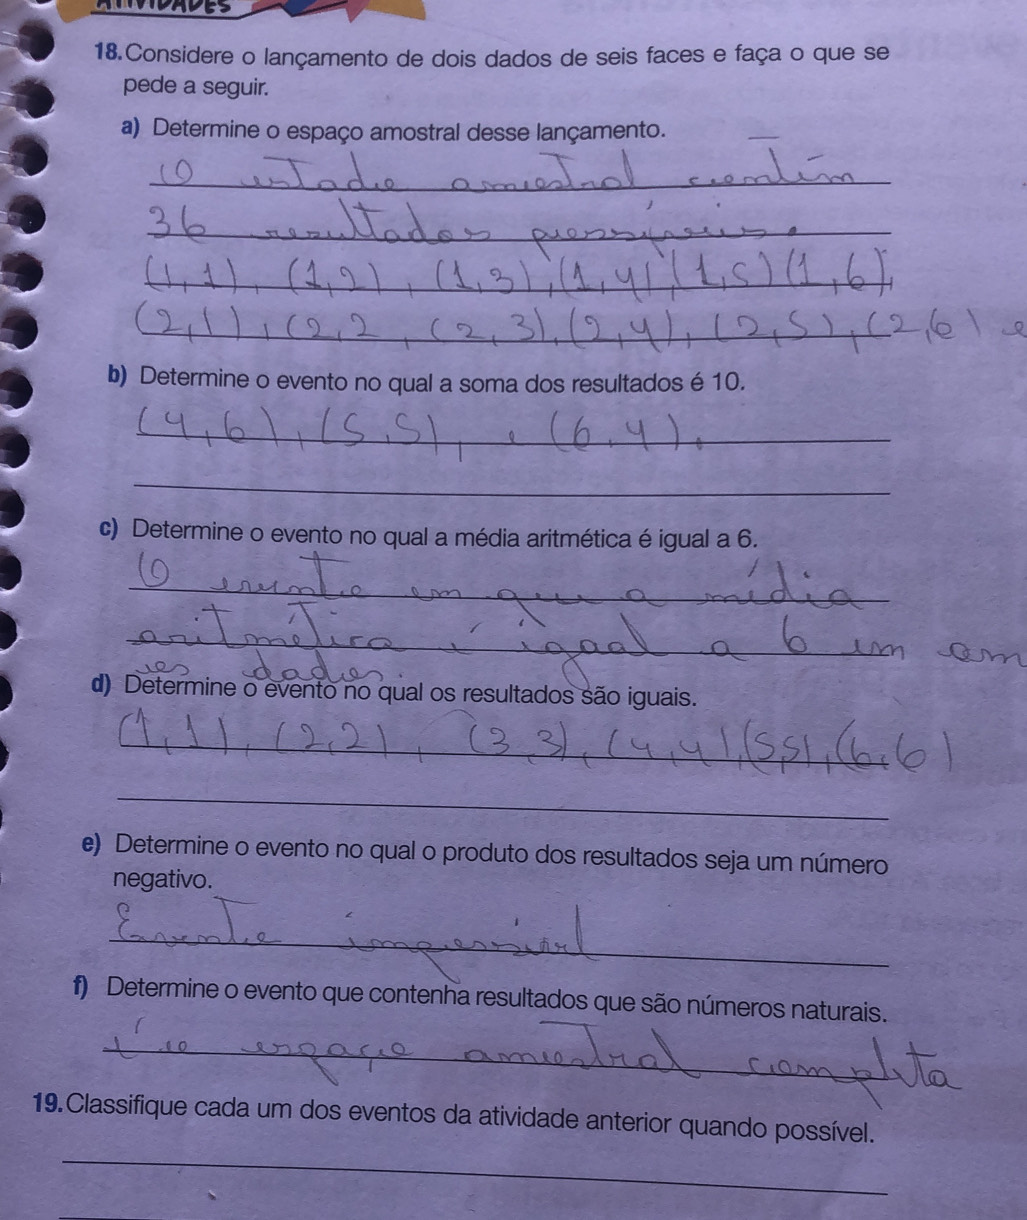 ATIVIDADES
18. Considere o lançamento de dois dados de seis faces e faça o que se
pede a seguir.
a) Determine o espaço amostral desse lançamento.
O estado amostral contém
36 resultados possíveis.
(1,1), (1,2), (1,3), (1,4) (1,5) (1,6),
(2,1), (2,2, (2,3), (2,4), (2,5), (2,6) e
b) Determine o evento no qual a soma dos resultados é 10.
(4,6), (5,5), e (6,4).
c) Determine o evento no qual a média aritmética é igual a 6.
O evento em que a média
aritmética é igaal a 6 em am
dados.
d) Determine o evento no qual os resultados são iguais.
(1,1), (2,2), (3,3), (4,4), (5,5), (6,6)
e) Determine o evento no qual o produto dos resultados seja um número
negativo.
Evento impossível
f) Determine o evento que contenha resultados que são números naturais.
é o espaço amostral completa
19. Classifique cada um dos eventos da atividade anterior quando possível.